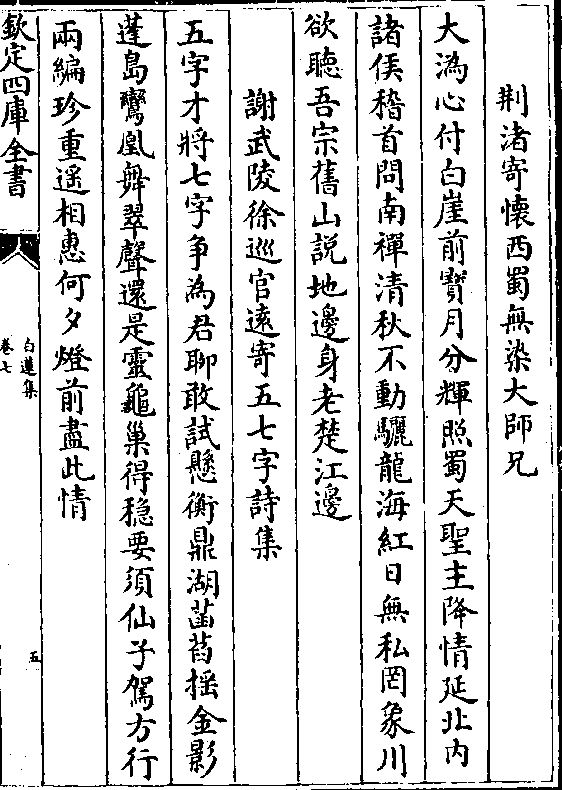 荆渚寄懷西蜀無染大師兄
大溈心付白崖前寳月分輝照蜀天聖主降情延北内
諸侯稽首問南禪清秋不動驪龍海紅日無私罔象川
欲聽吾宗舊山説地邊身老楚江邊
謝武陵徐巡官逺寄五七字詩集
五字才將七字争為君聊敢試懸衡鼎湖菡萏揺金影
蓬島鸞凰舞翠聲還是靈龜巢得穏要須仙子駕方行
兩編珍重遥相惠何夕燈前盡此情
欽定四庫全書
白蓮集
卷七
五